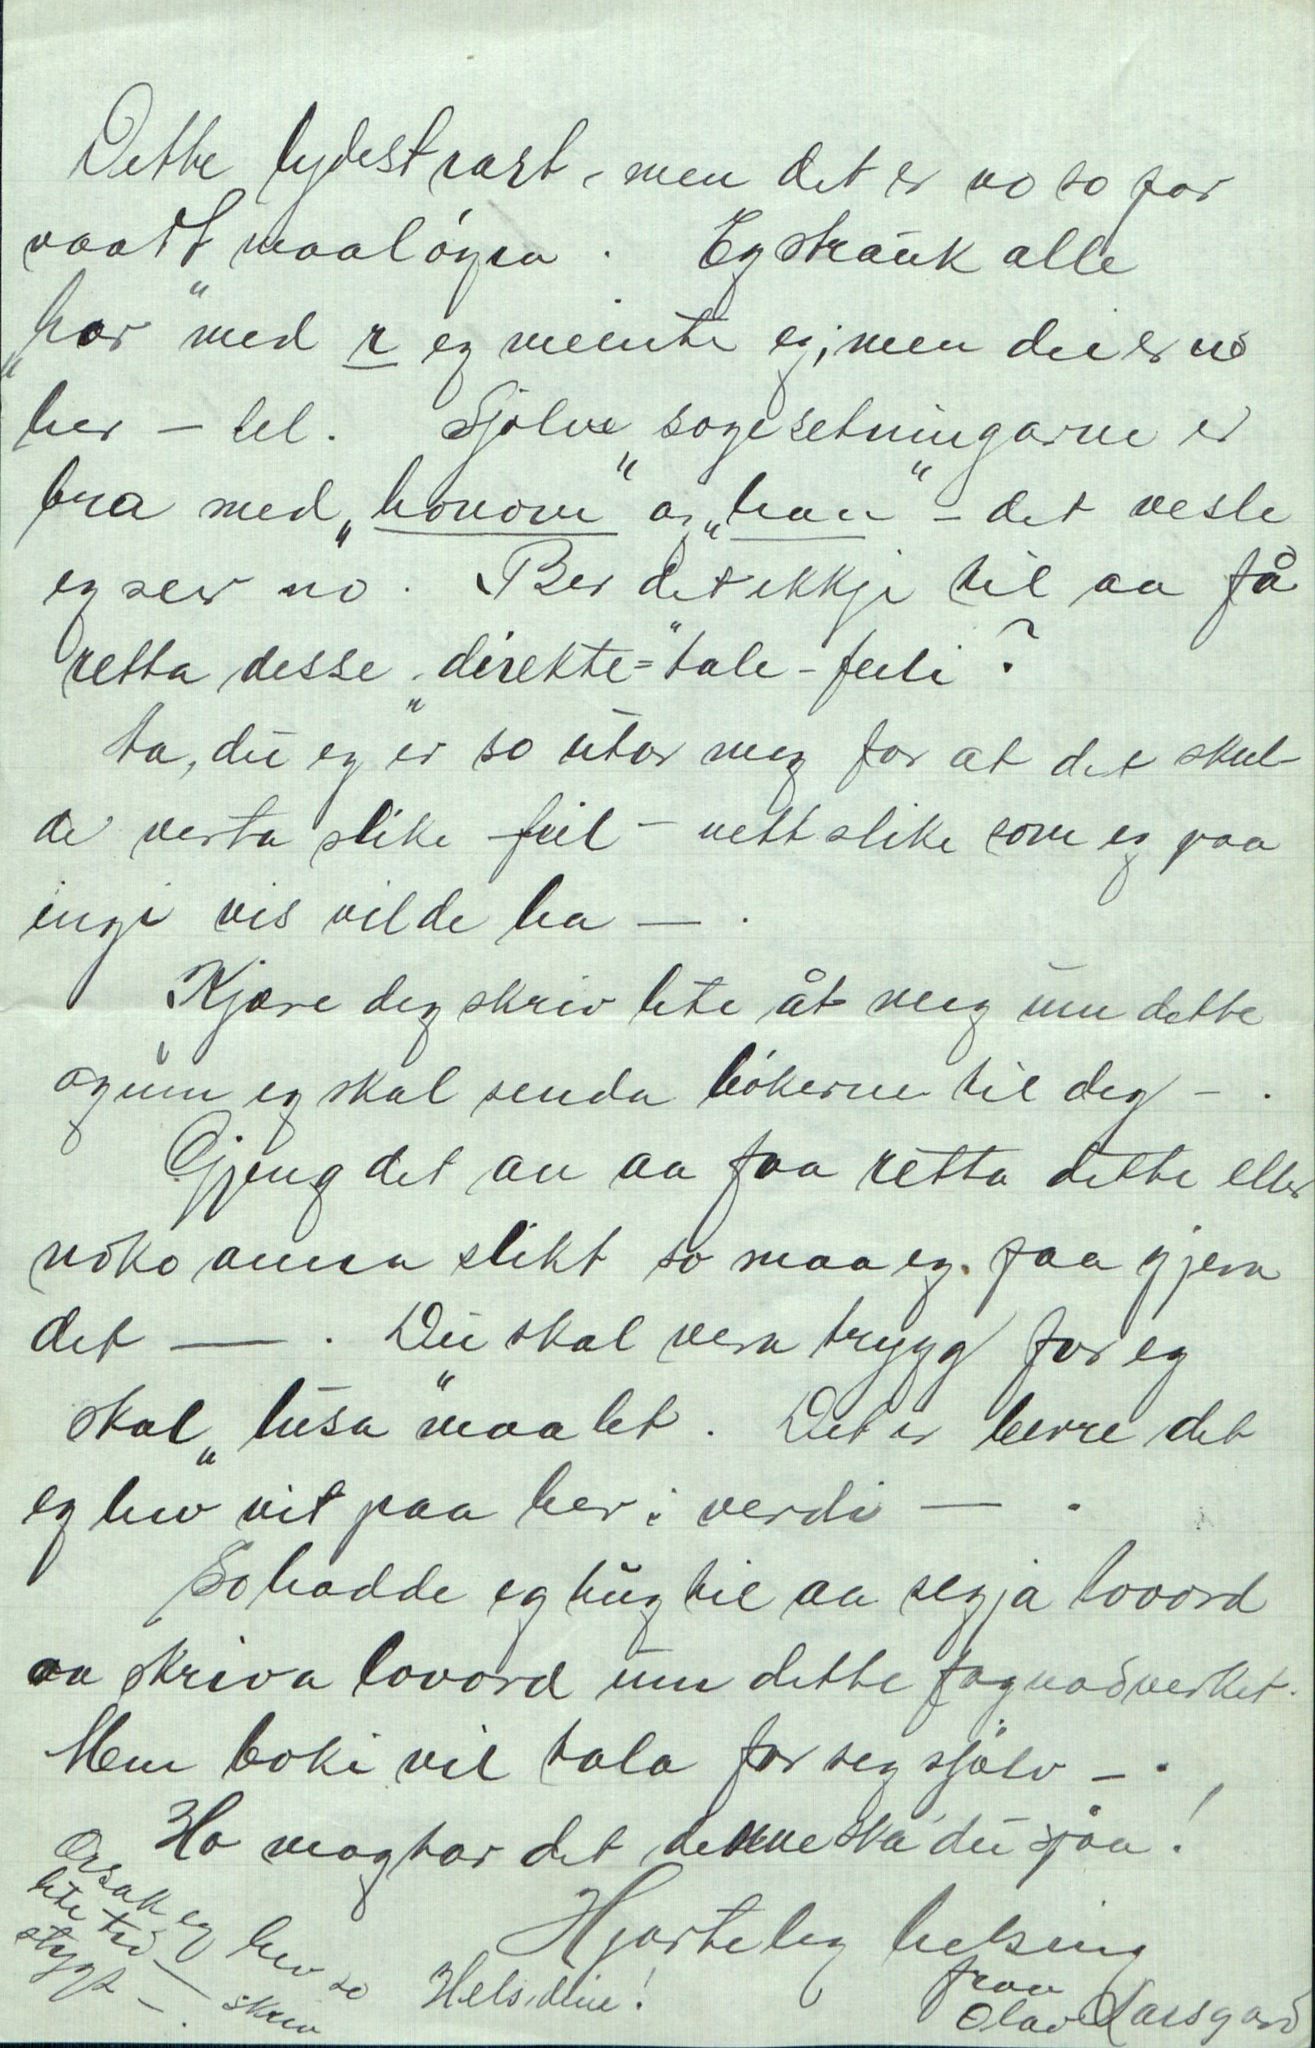 Dette lydest rart, men det er no so for
vaart maaløyra. Eg strauk alle
„har" med r eg meinte eg, men dei er no
her – lel. Sjølve sogesetningarne er
bra med „honom" og „han" – det vesle
eg ser no. Ber det ikkji til aa få
retta desse „direkte="tale-feili?
Ja, du eg er so utor meg for at det skul-
de verta slike feil – nett slike som eg paa
ingi vis vilde ha — .
Kjære deg skriv lite åt meg um dette
og um eg skal senda bøkerne til deg – .
Gjeng det an aa faa retta dette eller
noko anna slikt so maa eg faa gjera
det — . Du skal vera trygg for eg
skal „lusa" maalet. Det er berre det
eg hev vit paa her i verdi — .
So hadde eg hug til aa segja lovord
aa skriva lovord um dette fagnadverket.
Men boki vil tala for seg sjølv – .
Ho magtar det, denne ska du sjaa!
Hjarteleg helsing
fraa
Olav Larsgard
Hels dine!
Orsak eg hev so
lite tid – skriv
stygt –